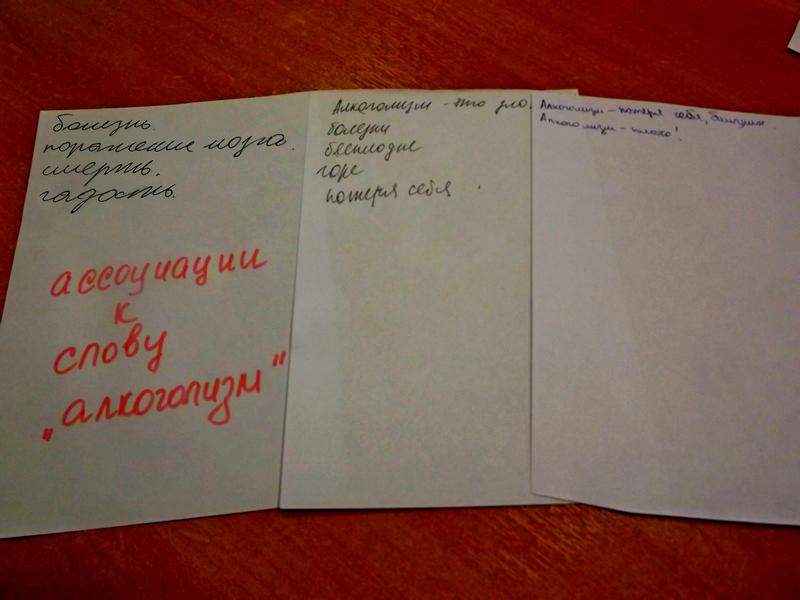 болезнь.
поражение мозга.
смерть.
гадость.
ассоциации
к
слову
„алкоголизм"
Алкоголизм - это зло.
болезни
бесплодие
горе
потеря себя
Алкоголизм - потеря себя,
Алкоголизм - плохо!